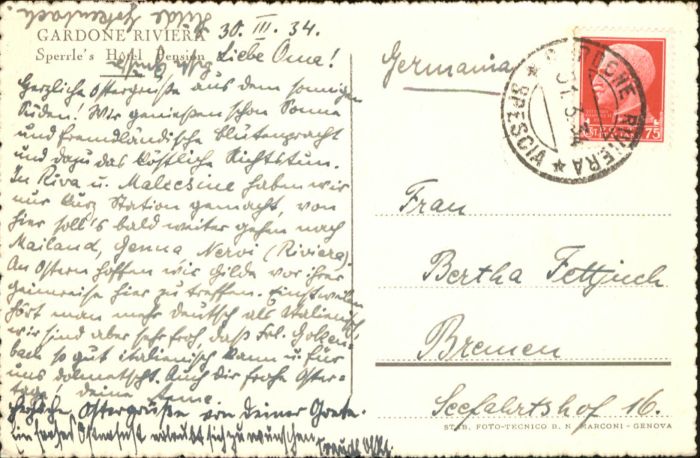 GARDONE RIVIERA
Sperrle's Hôtel Pension
30. III. 34.
Liebe Oma!
Herzliche Ostergrüße aus dem sonnigen
Süden! Wir genießen schon Sonne
und fremdländische Blütenpracht
und dazu das köstliche Nichtstun.
In Riva u. Malcesine haben wir
nur kurz Station gemacht, von
hier soll's bald weiter gehen nach
Mailand, Genua Nervi (Riviera).
An Ostern hoffen wir Hilde vor ihrer
Heimreise hier zu treffen. Einstweilen
hört man mehr deutsch als Italienisch
wir sind aber sehr froh, daß Frl. Goken-
bach so gut italienisch kann u. für
uns dolmetscht. Auch dir frohe Oster-
tage deine
herzliche Ostergrüße von Deiner Grete.
Ein frohes Osterfest erlaubt sich zu wünschen
Germania
GARDONE RIVIERA
31.3.34
BRESCIA
75
Frau
Bertha Fettjuch
Bremen
Seefahrtshof 16.
STAB. FOTO-TECNICO B. N. MARCONI - GENOVA